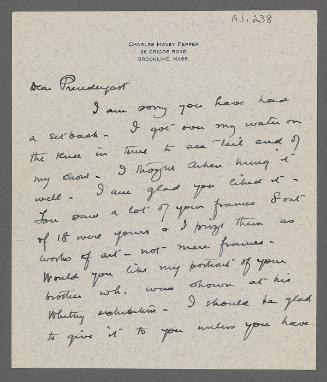 AJ. 238
CHARLES HOVEY PEPPER
56 CRIGGS ROAD
BROOKLINE, MASS.
Dear Prendergast
I am sorry you have had
a set back - I got over my water on
the knee in time to see tail end of
my show - I thought Aiken hung it
well - I am glad you liked it -
You saw a lot of your frames 8 out
of 18 were yours & I prize them as
works of art - not mere frames -
Would you like my portrait of your
brother wh. was shown at his
Whitney exhibition - I should be glad
to give it to you unless you have